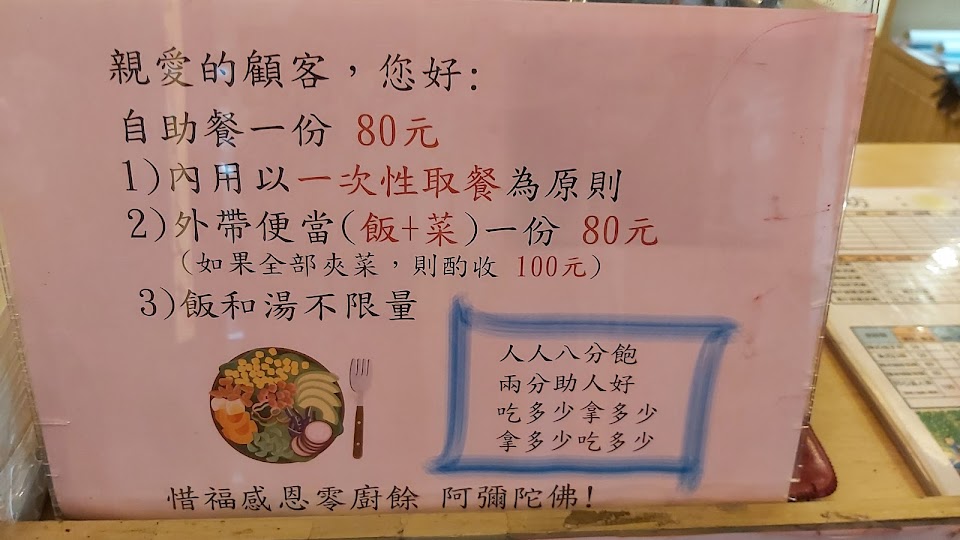 親愛的顧客，您好:
自助餐一份 80元
1)內用以一次性取餐為原則
2)外帶便當(飯+菜)一份 80元
(如果全部夾菜，則酌收 100元)
3)飯和湯不限量
人人八分飽
兩分助人好
吃多少拿多少
拿多少吃多少
惜福感恩零廚餘 阿彌陀佛!